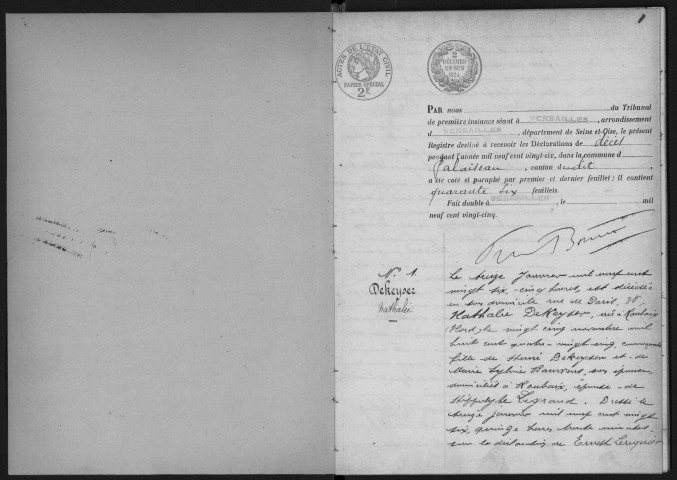 1
ACTES DE L'ETAT CIVIL
PAPIER SPÉCIAL
2F
2
DÉCIMES
EN SUS
1924
PAR nous du Tribunal
de première instance séant à VERSAILLES, arrondissement
d VERSAILLES, département de Seine-et-Oise, le présent
Registre destiné à recevoir les Déclarations de décès
pendant l'année mil neuf cent vingt-six, dans la commune d
Palaiseau, canton dudit,
a été coté et paraphé par premier et dernier feuillet; il contient
quarante six feuillets.
Fait double à VERSAILLES, le mil
neuf cent vingt-cinq.
No 1.
DeKeyser
Nathalie
Le treize Janvier mil neuf cent
vingt six, cinq heures, est décédée
en son domicile rue de Paris, 38,
Nathalie DeKeyser, née à Roubaix
Nord, le vingt cinq novembre mil
huit cent quatre-vingt-cinq,
fille de Henri DeKeyser et de
Marie Sylvie son épouse
domiciliés à Roubaix, épouse de
Hippolyte Legrand. Dressé le
treize janvier mil neuf cent vingt
six, quinze heures trente minutes
sur la déclaration de Ernest